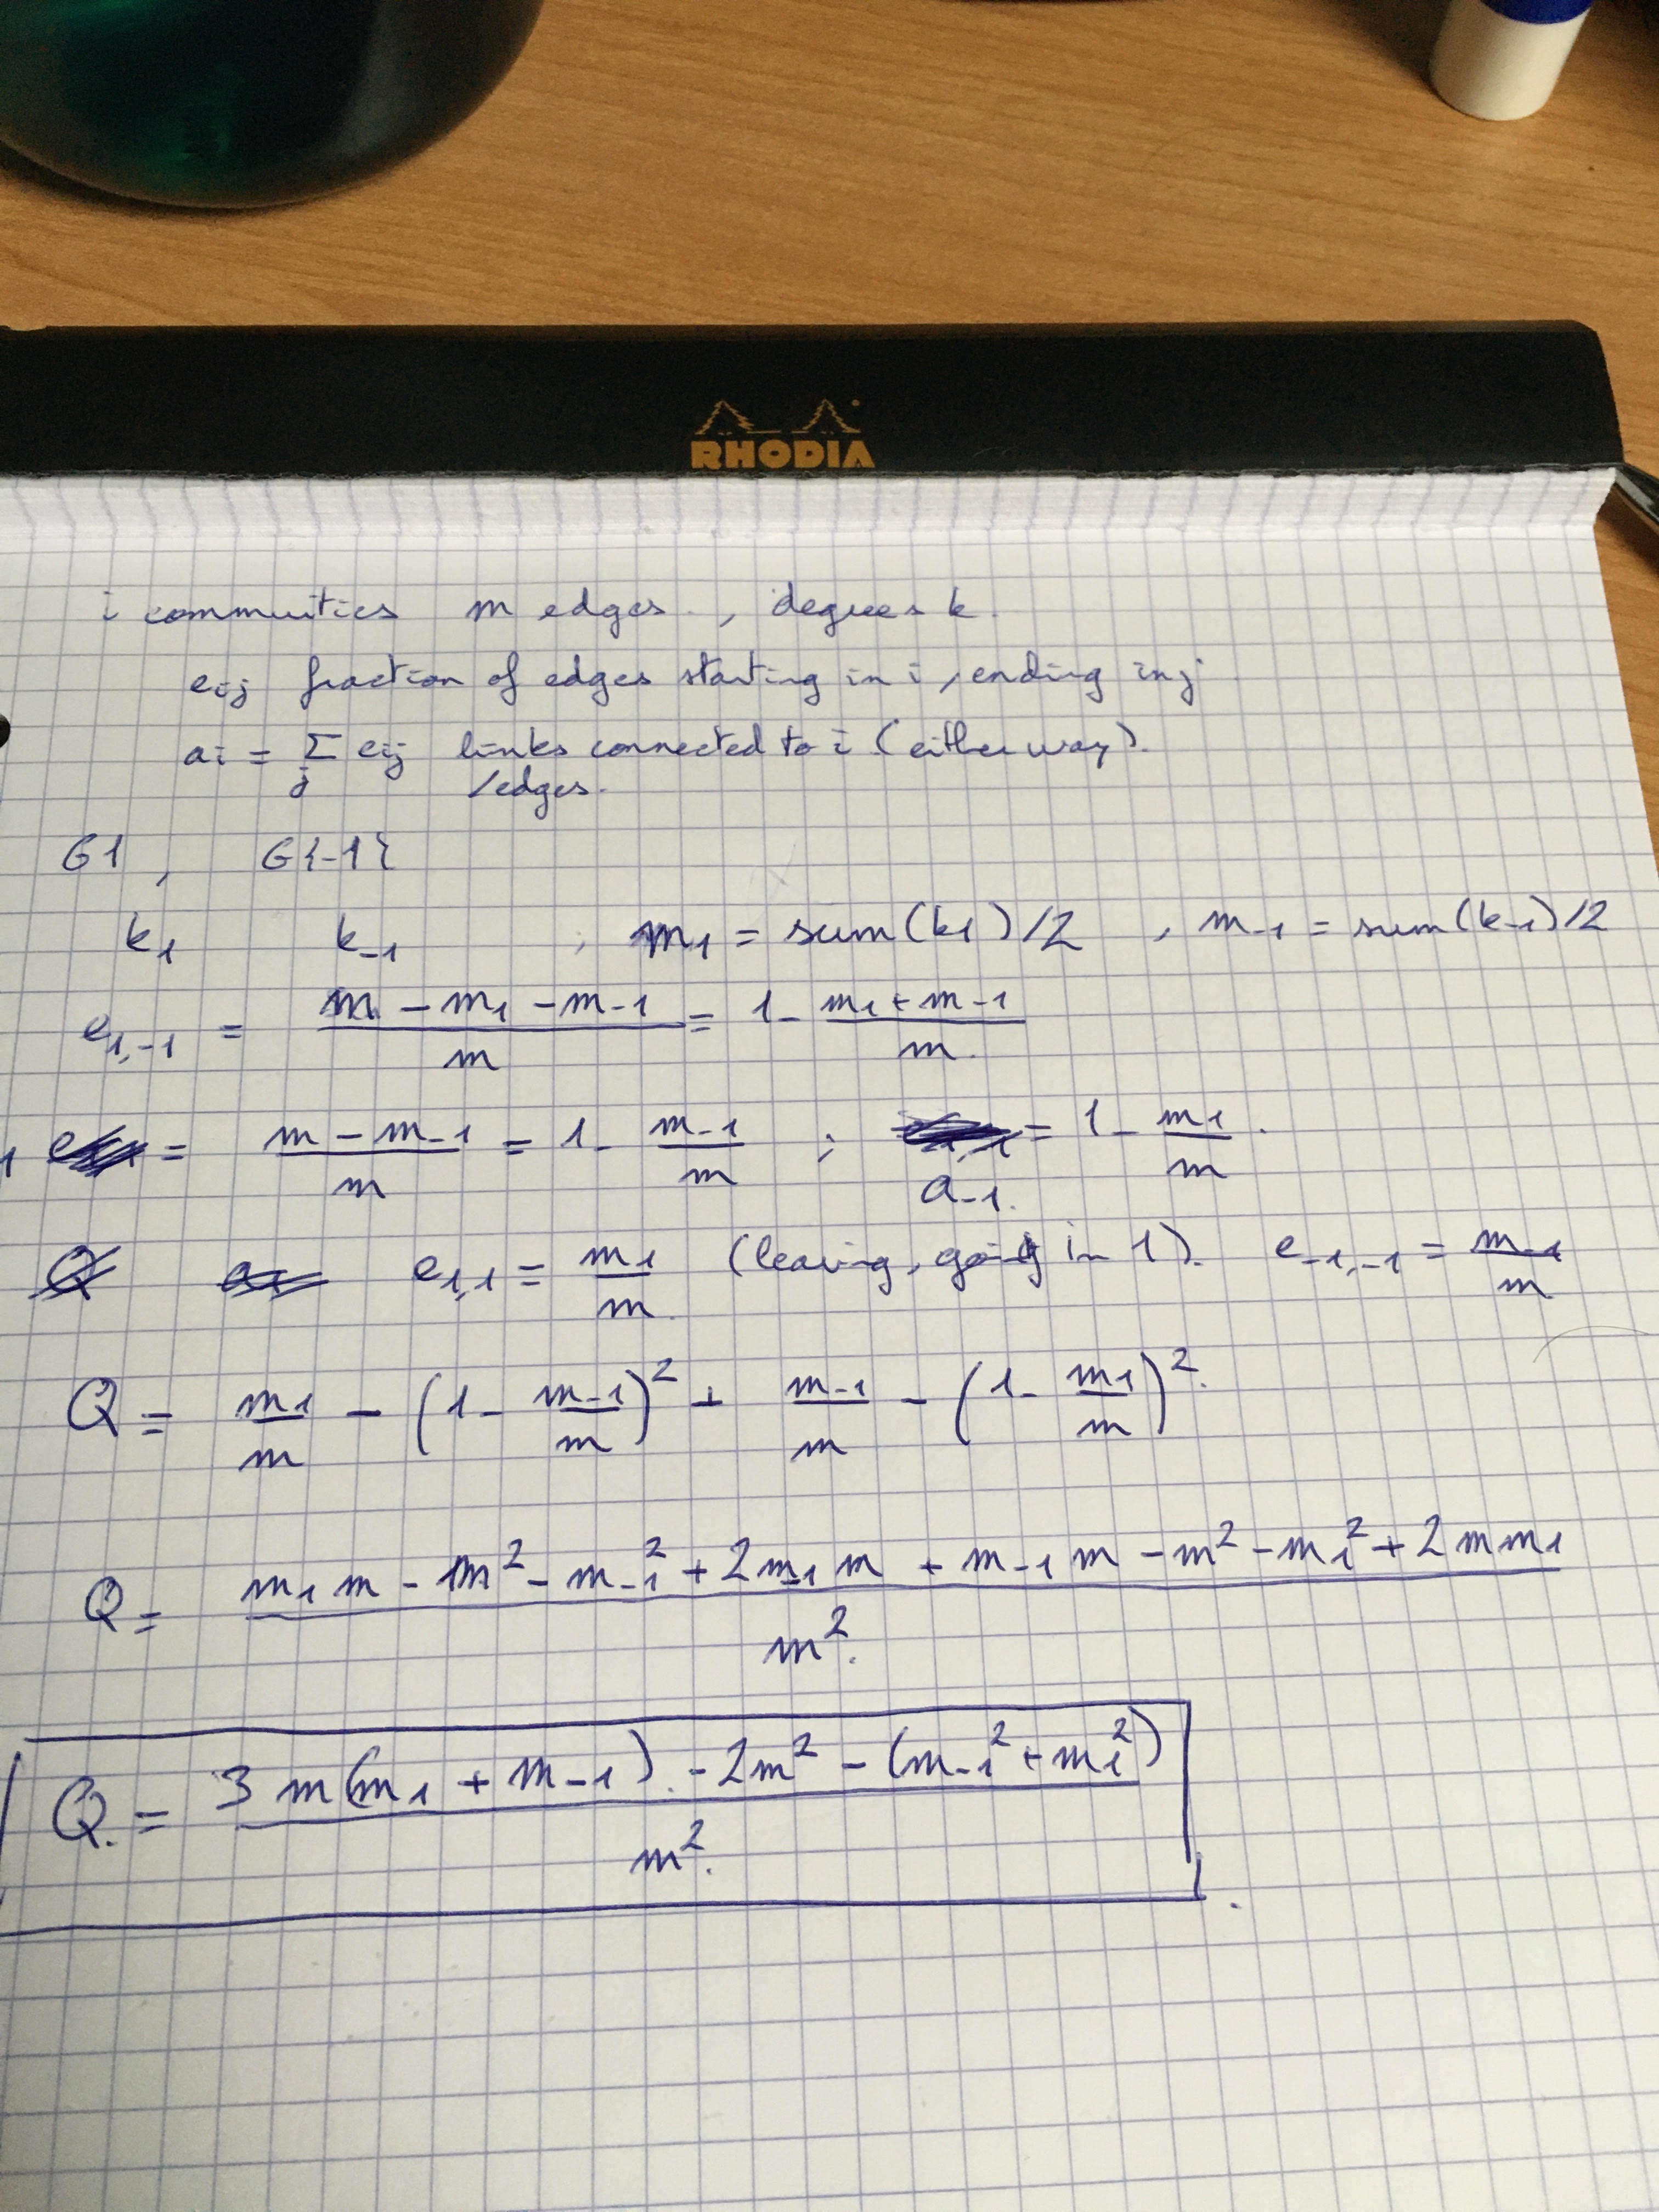 RHODIA
i commuities m edges., degrees k.
eij fraction of edges starting in i, ending in j
ai = Σ eij links connected to i (either way).
j /edges.
G1, G{-1}
k1 k-1 ; m1 = sum(k1)/2, m-1 = sum(k-1)/2
e1,-1 = (m - m1 - m-1)/m = 1 - (m1 + m-1)/m.
= (m - m-1)/m = 1 - m-1/m ; a-1. = 1 - m1/m.
e1,1 = m1/m. (leaving, going in 1). e-1,-1 = m-1/m
Q = m1/m - (1 - m-1/m)² + m-1/m - (1 - m1/m)².
Q = (m1 m - m² - m-1² + 2m-1 m + m-1 m - m² - m1² + 2 m m1)/m².
Q. = (3 m(m1 + m-1). - 2m² - (m-1² + m1²))/m².